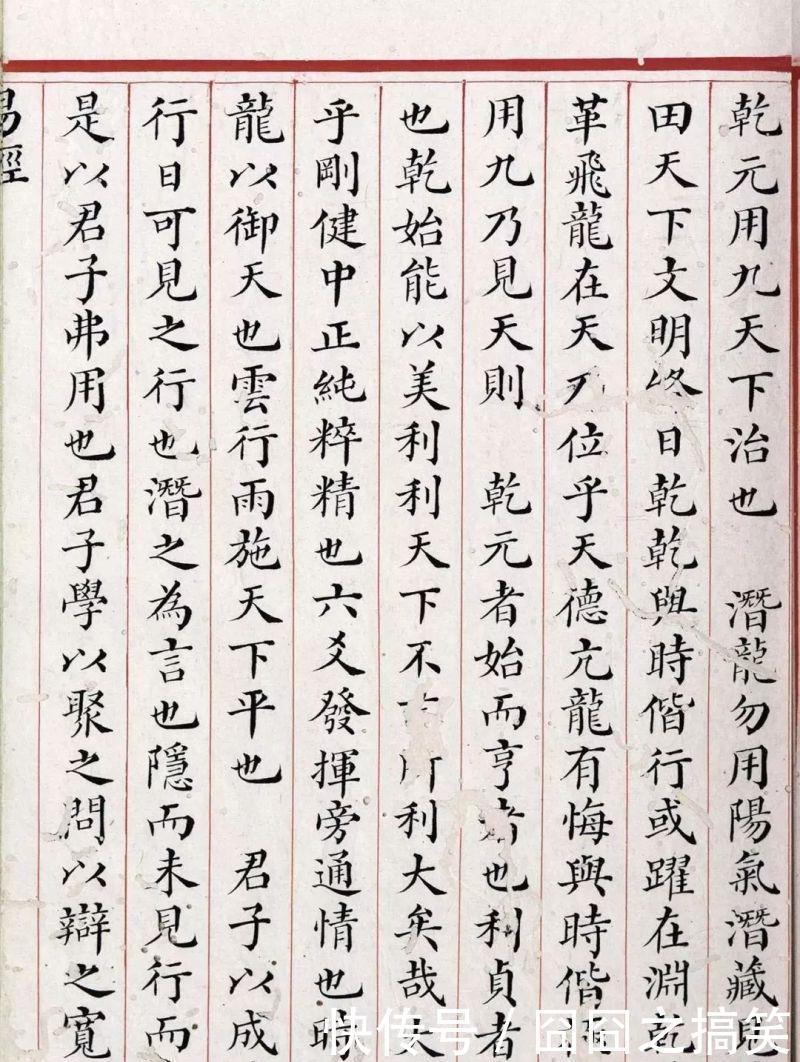 乾元用九天下治也　潛龍勿用陽氣潛藏見
田天下文明終日乾乾與時偕行或躍在淵乾
革飛龍在天乃位乎天德亢龍有悔與時偕
用九乃見天則　乾元者始而亨也利貞者
也乾始能以美利利天下不所利大矣哉大
乎剛健中正純粹精也六爻發揮旁通情也時
龍以御天也雲行雨施天下平也　君子以成
行日可見之行也潛之為言也隱而未見行而
是以君子弗用也君子學以聚之問以辯之寬
易經
快传号 / 囧囧之搞笑